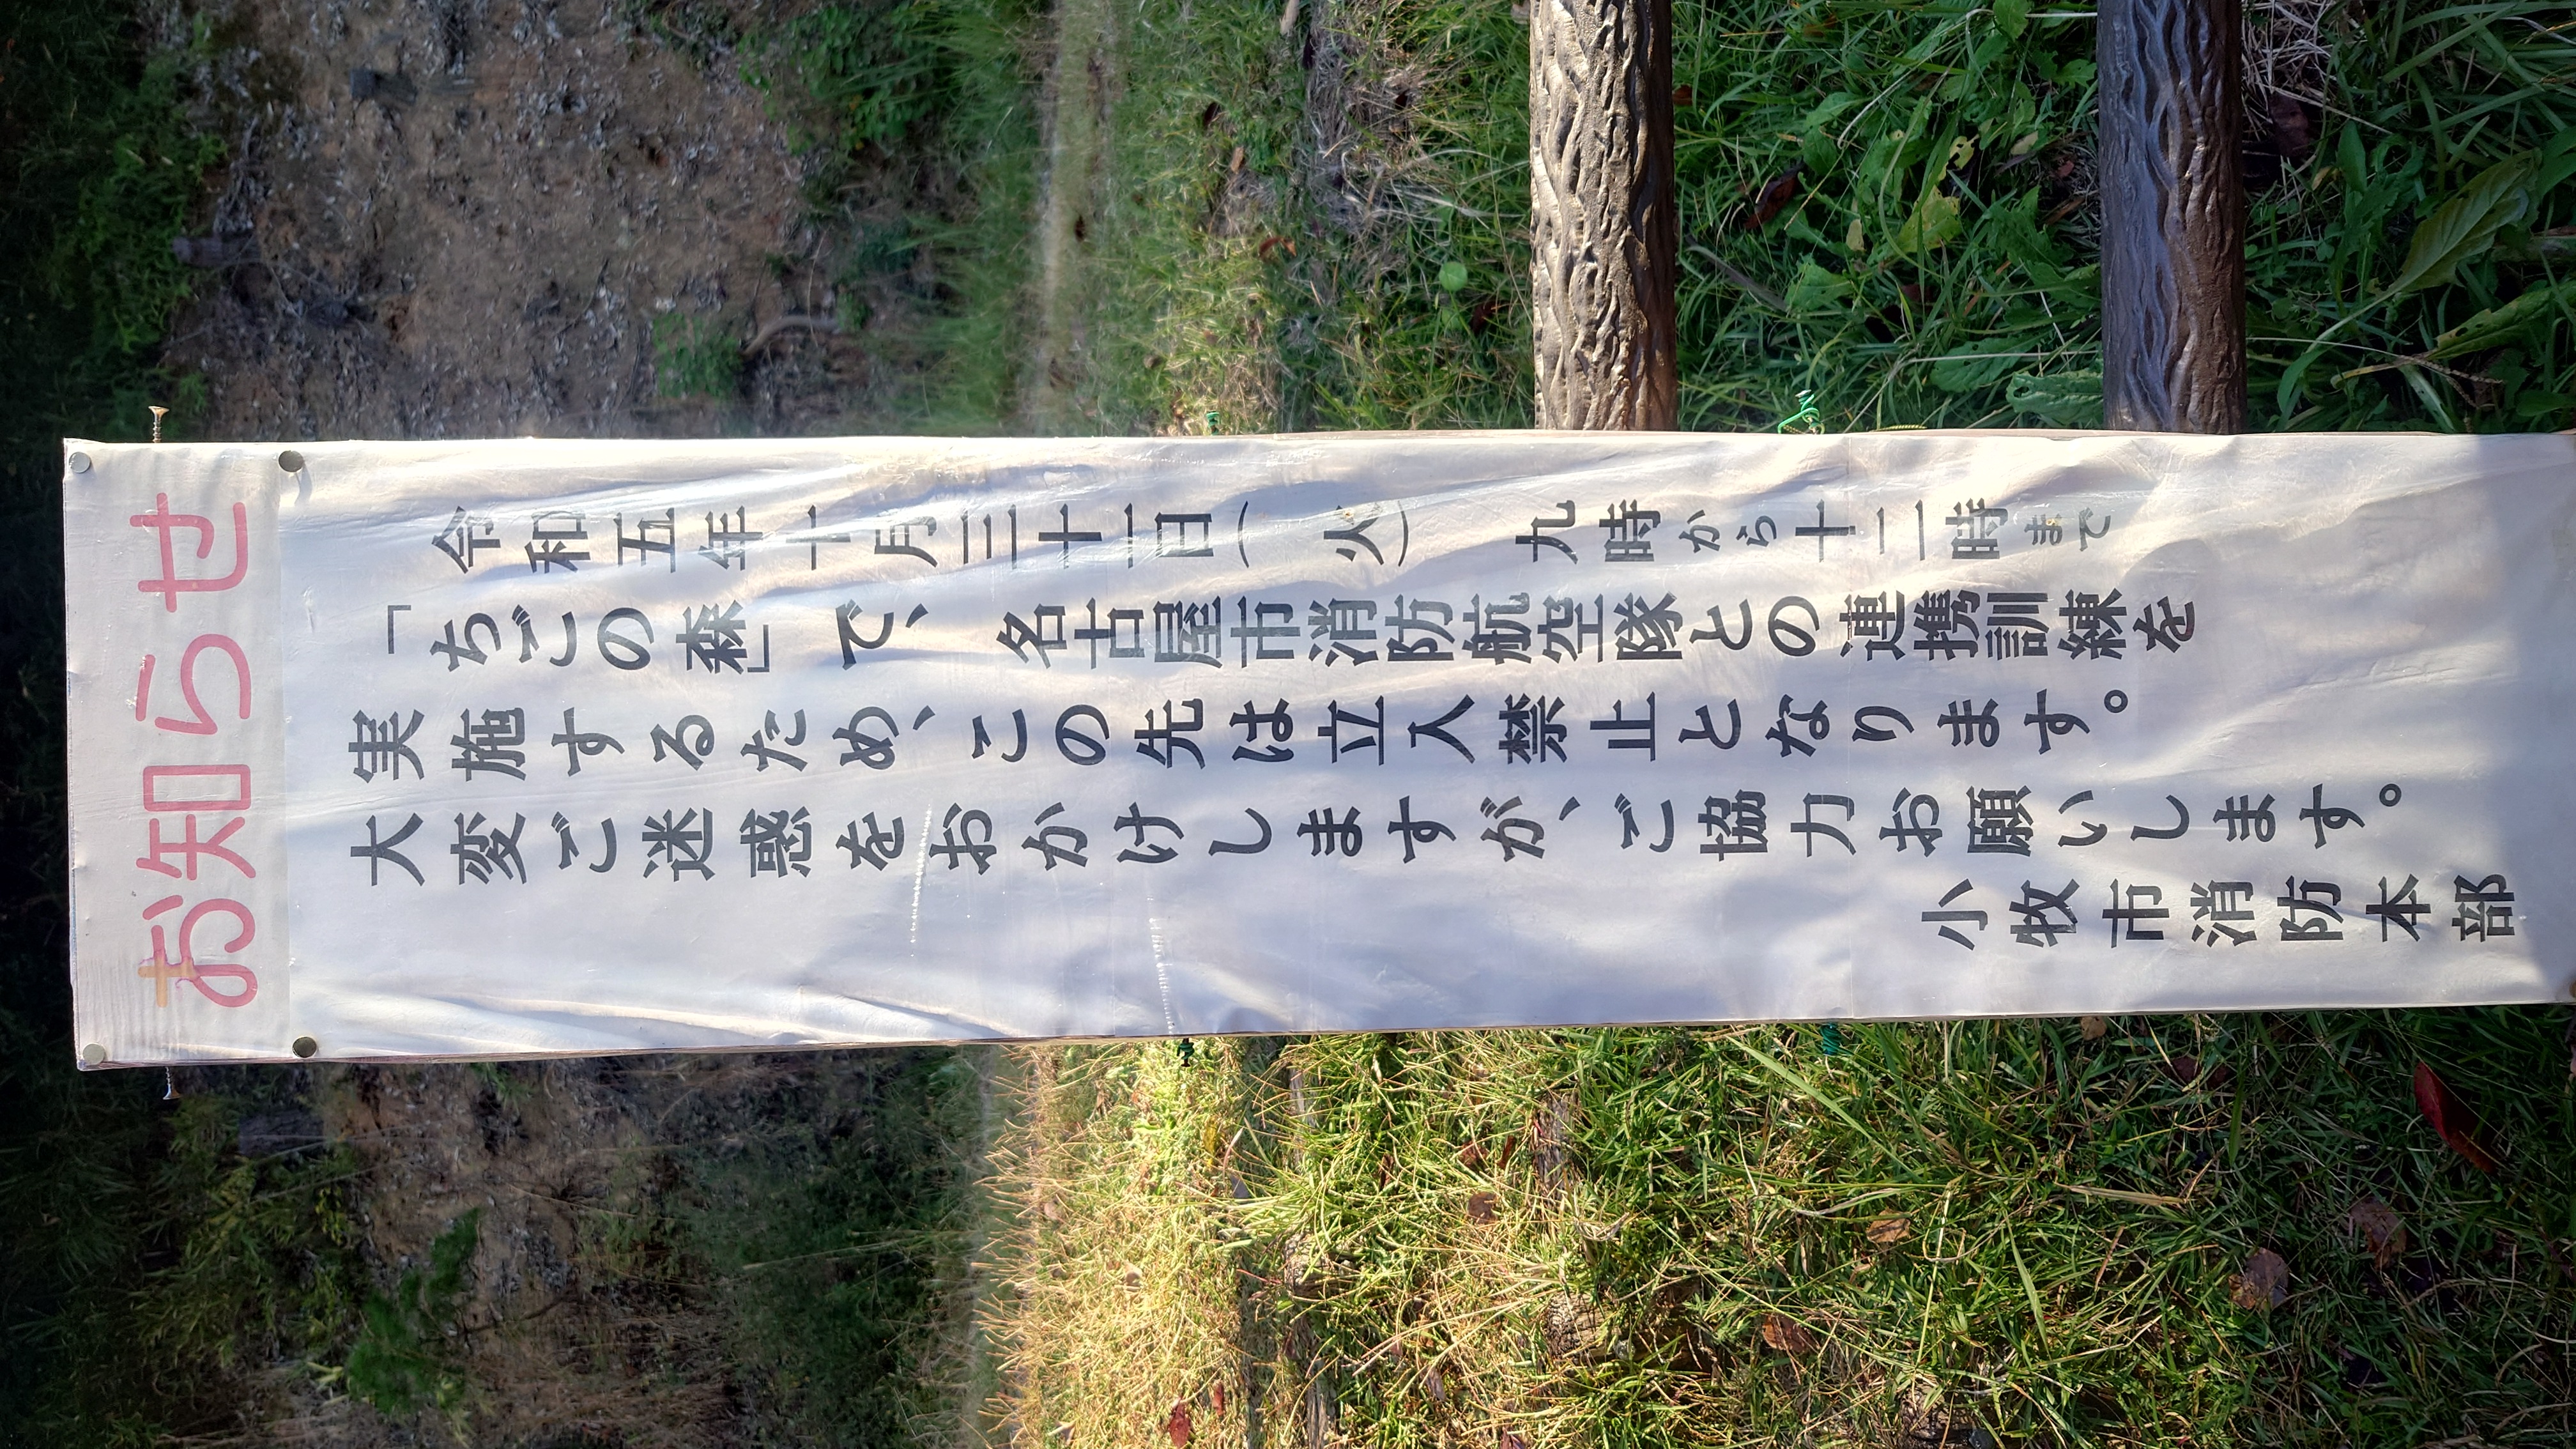 お知らせ
令和五年十月三十一日（火）　九時から十二時まで
「ちごの森」で、名古屋市消防航空隊との連携訓練を
実施するため、この先は立入禁止となります。
大変ご迷惑をおかけしますが、ご協力お願いします。
小牧市消防本部